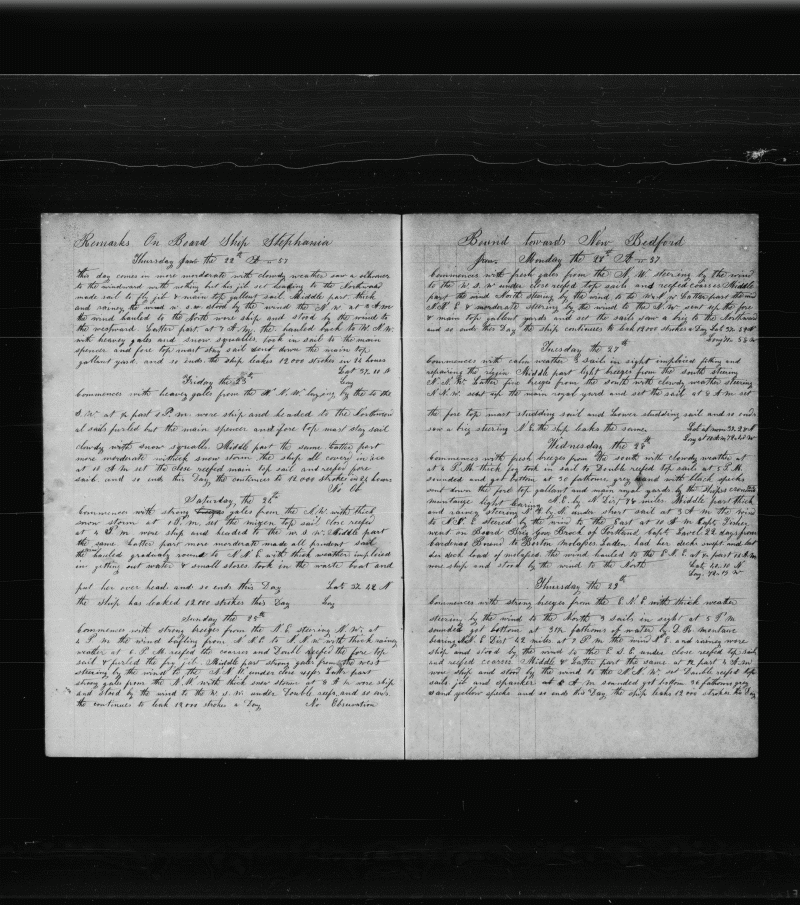 Remarks On Board Ship Stephania
Thursday the 22th 57
this day comes in more moderate with clowdy weather saw a schooner
to the windward with nothing but his jib set heading to the Northward
made sail to fly jib & main top gallant sail. Middle part thick
and rainey the wind W S W stood by the wind the N W at 3 A m
the wind hauled to the North wore ship and stood by the wind to
the westward Latter part at 7 A. m. the hauled back to W N. W.
with heavey gales and snow squalles took in sail to the main
spencer and fore top mast stay sail send down the main top
gallant yard. and so ends the ship leakes 12000 strokes in 24 houers
Lat 37.10 N
Friday the 23th Long
Commences with heavey gales from the W. N. W. laying by the to the
S. W at 2 P. m. wore ship and headed to the Northward
al sails furled but the main spencer and fore top mast stay sail
clowdy with snow squalls. Middle part the same Latter part
more moderate with thick snow storm the ship all covered in ice
at 10 A m set the close reefed main top sail and reefed fore
sail. and so ends this day the continues to 12.000 strokes in 24 houers
No Ob
Saturday the 24th
Commences with strong gales from the N. W. with thick
snow storm at 1 P. m. set the mizen top sail close reefed
at 4 P. m wore ship and headed to the W S W Middle part
the same Latter part more moderate made all prudent sail
the hauled gradualy round to N N E with thick weather implied
in getting out water & small stores. took in the waste boat and
put her over head and so ends this Day Lat 37. 22 N
the ship has leaked 12000 strokes this Day Long
Sunday the 25th
Commences with strong breezes from the N. E. steering N. W. at
4 P. M the wind from N E to N N W with thick rainey
weather at 6. P. M reefed the coarses and Double reefed the fore top
sail & furled the fly jib. Middle part strong gales from the west
steering by the wind to the N. N. W. under close reefs Latter part
strong gales from the N. W with thick snow storm at 8 A M wore ship
and stood by the wind to the W. S. W. under Double reefs and so ends
the continues to leak 12000 strokes a Day No Observation
Bound toward New Bedford
Monday the 26th 57.
Commences with fresh gales from the N. W. steering by the wind
to the W. S. W under close reefed top sails and reefed coarses Middle
part the wind North steering by the wind to the W Latter part the wind
N. N. E & moderate steering by the wind to the N. W. sent up the fore
& main top gallant yards and set the sails saw a brig to the Northward
and so ends this Day the ship continues to leak 12000 strokes a Day Lat 37. 29 N
Long
Tuesday the 27th
Commences with calm weather 2 sails in sight implored fitting and
repairing the Middle part light breezes from the South steering
N. N. W. Latter five breeze from the South with clowdy weather steering
N N W. sent up the main royal yard and set the sail at 8 A m set
the fore top mast studding sail and Lower studding sail and so ends
saw a brig steering N. E. the ship leaks the same. Lat at noon 38. 29 N
Long at 10 A m
Wednesday the 28th
Commences with fresh breezes from the South with clowdy weather at
at 4 P M thick fog took in sail to Double reefed top sails at 5 P. M.
sounded and got bottom at 30 fathoms grey sand with black specks
sent down the fore top gallant and main royal yards by the Shipes
muntauge light bearing N. E. by N Dis. 74 miles Middle part thick
and rainey steering N. W. by N. under short sail at 3 A m the wind
to N. N. E steered by the wind to the East at 10 A m Capt
went on Board Brig Geo Brock of Portland Capt. Lovel 22 days from
Cardenas Bound to Boston molasses Laden had her decks swept and lost
her deck load of molasses. the wind hauled to the E N E at 12 A m
wore ship and stood by the wind to the North Lat. 40. 10 N
Long. 72. 13 W
Thursday the 29th
Commences with strong breezes from the E. N. E. with thick weather
steering by the wind to the North 3 sails in sight at 5 P. M
sounded got bottom at fathoms of water by D. R. montauc
bearing N. E Dist 42 miles at 7 P. m the wind N E. and rainey wore
ship and stood by the wind to the E S E under close reefed top sails
and reefed coarses Middle & Latter part the same at 4 A m
wore ship and stood by the wind to the N. N. W. set Double reefed top
sails jib and spanker at 8 A m sounded got bottom 26 fathoms grey
sand yellow specks and so ends this Day the ship leaks 12000 strokes this Day